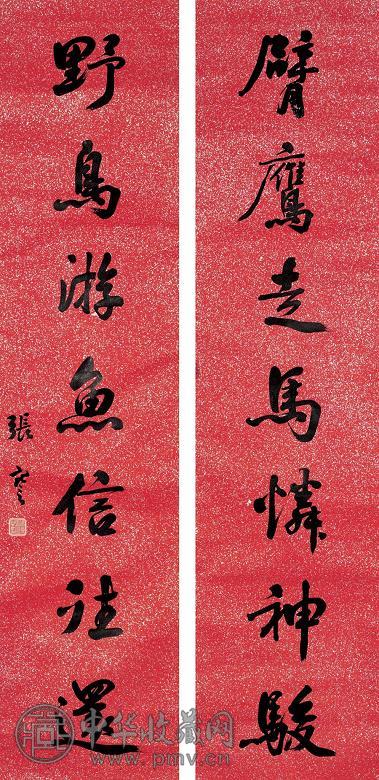 臂鷹走馬憐神駿
野鳥游魚信往還
張謇
中华收藏网
www.pmv.cn